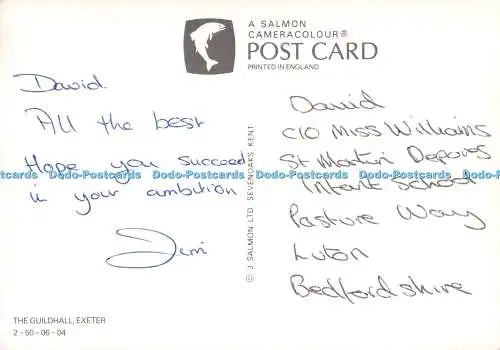 A SALMON
CAMERACOLOUR®
POST CARD
PRINTED IN ENGLAND
David.
All the best
Hope you succeed
in your ambition
Jim
David
C/O Miss Williams
St Martin Deporres
Infant School
Pasture Way
Luton
Bedfordshire
© J. SALMON LTD. SEVENOAKS, KENT
THE GUILDHALL, EXETER
2 - 50 - 06 - 04
Dodo-Postcards Dodo-Postcards Dodo-Postcards Dodo-Postcards